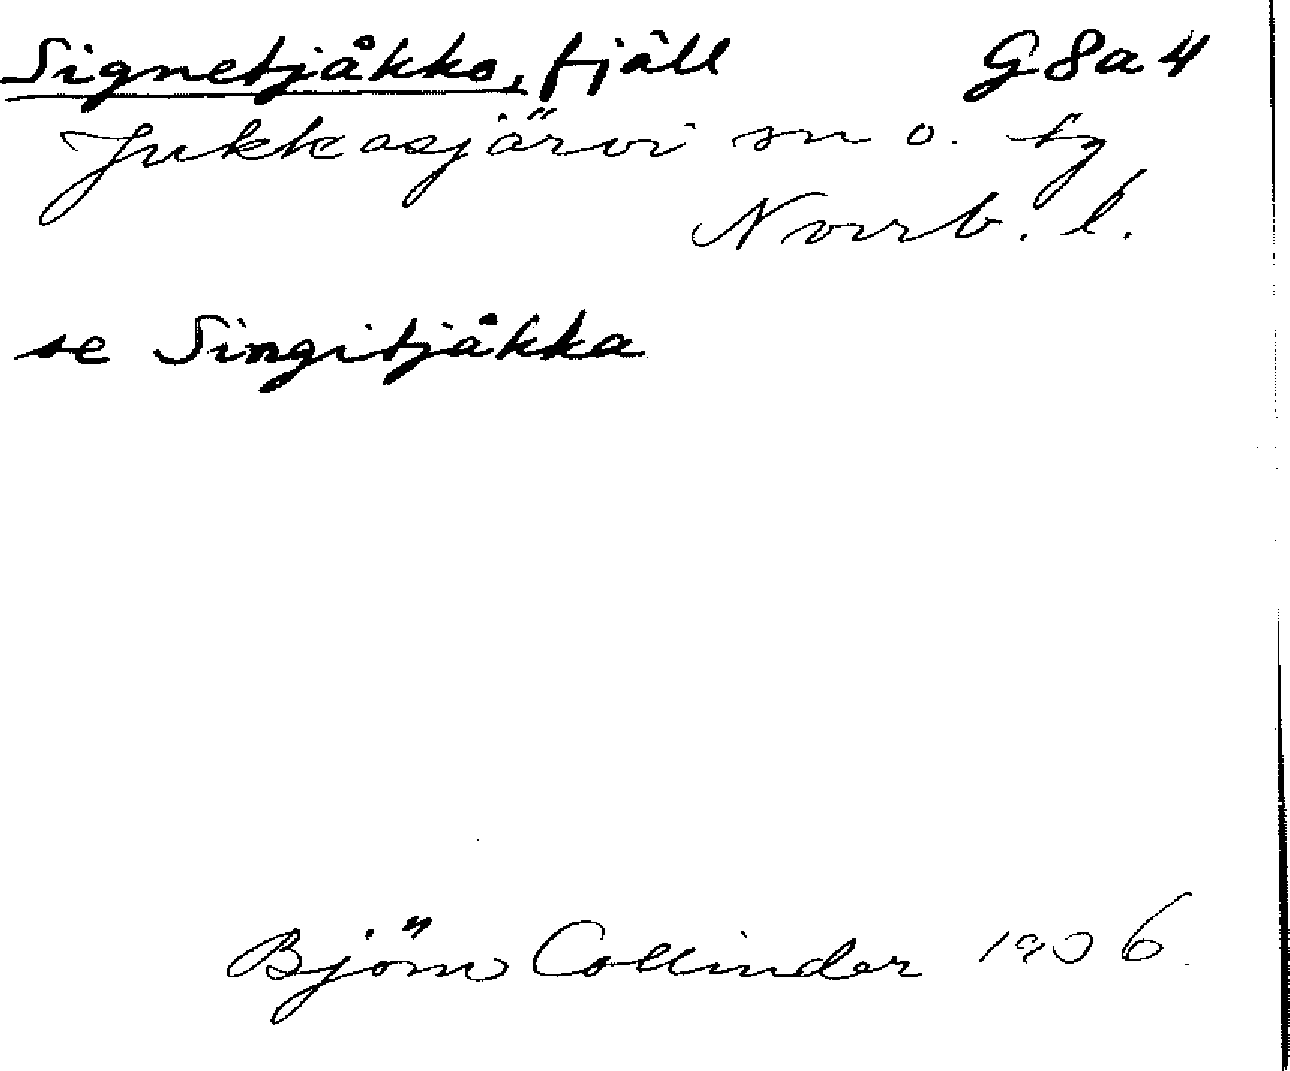 Signetjåkko, fjäll G8a4
Jukkasjärvi sn o. tg
Norrb. l.
se Singitjåkka
Björn Collinder 1936